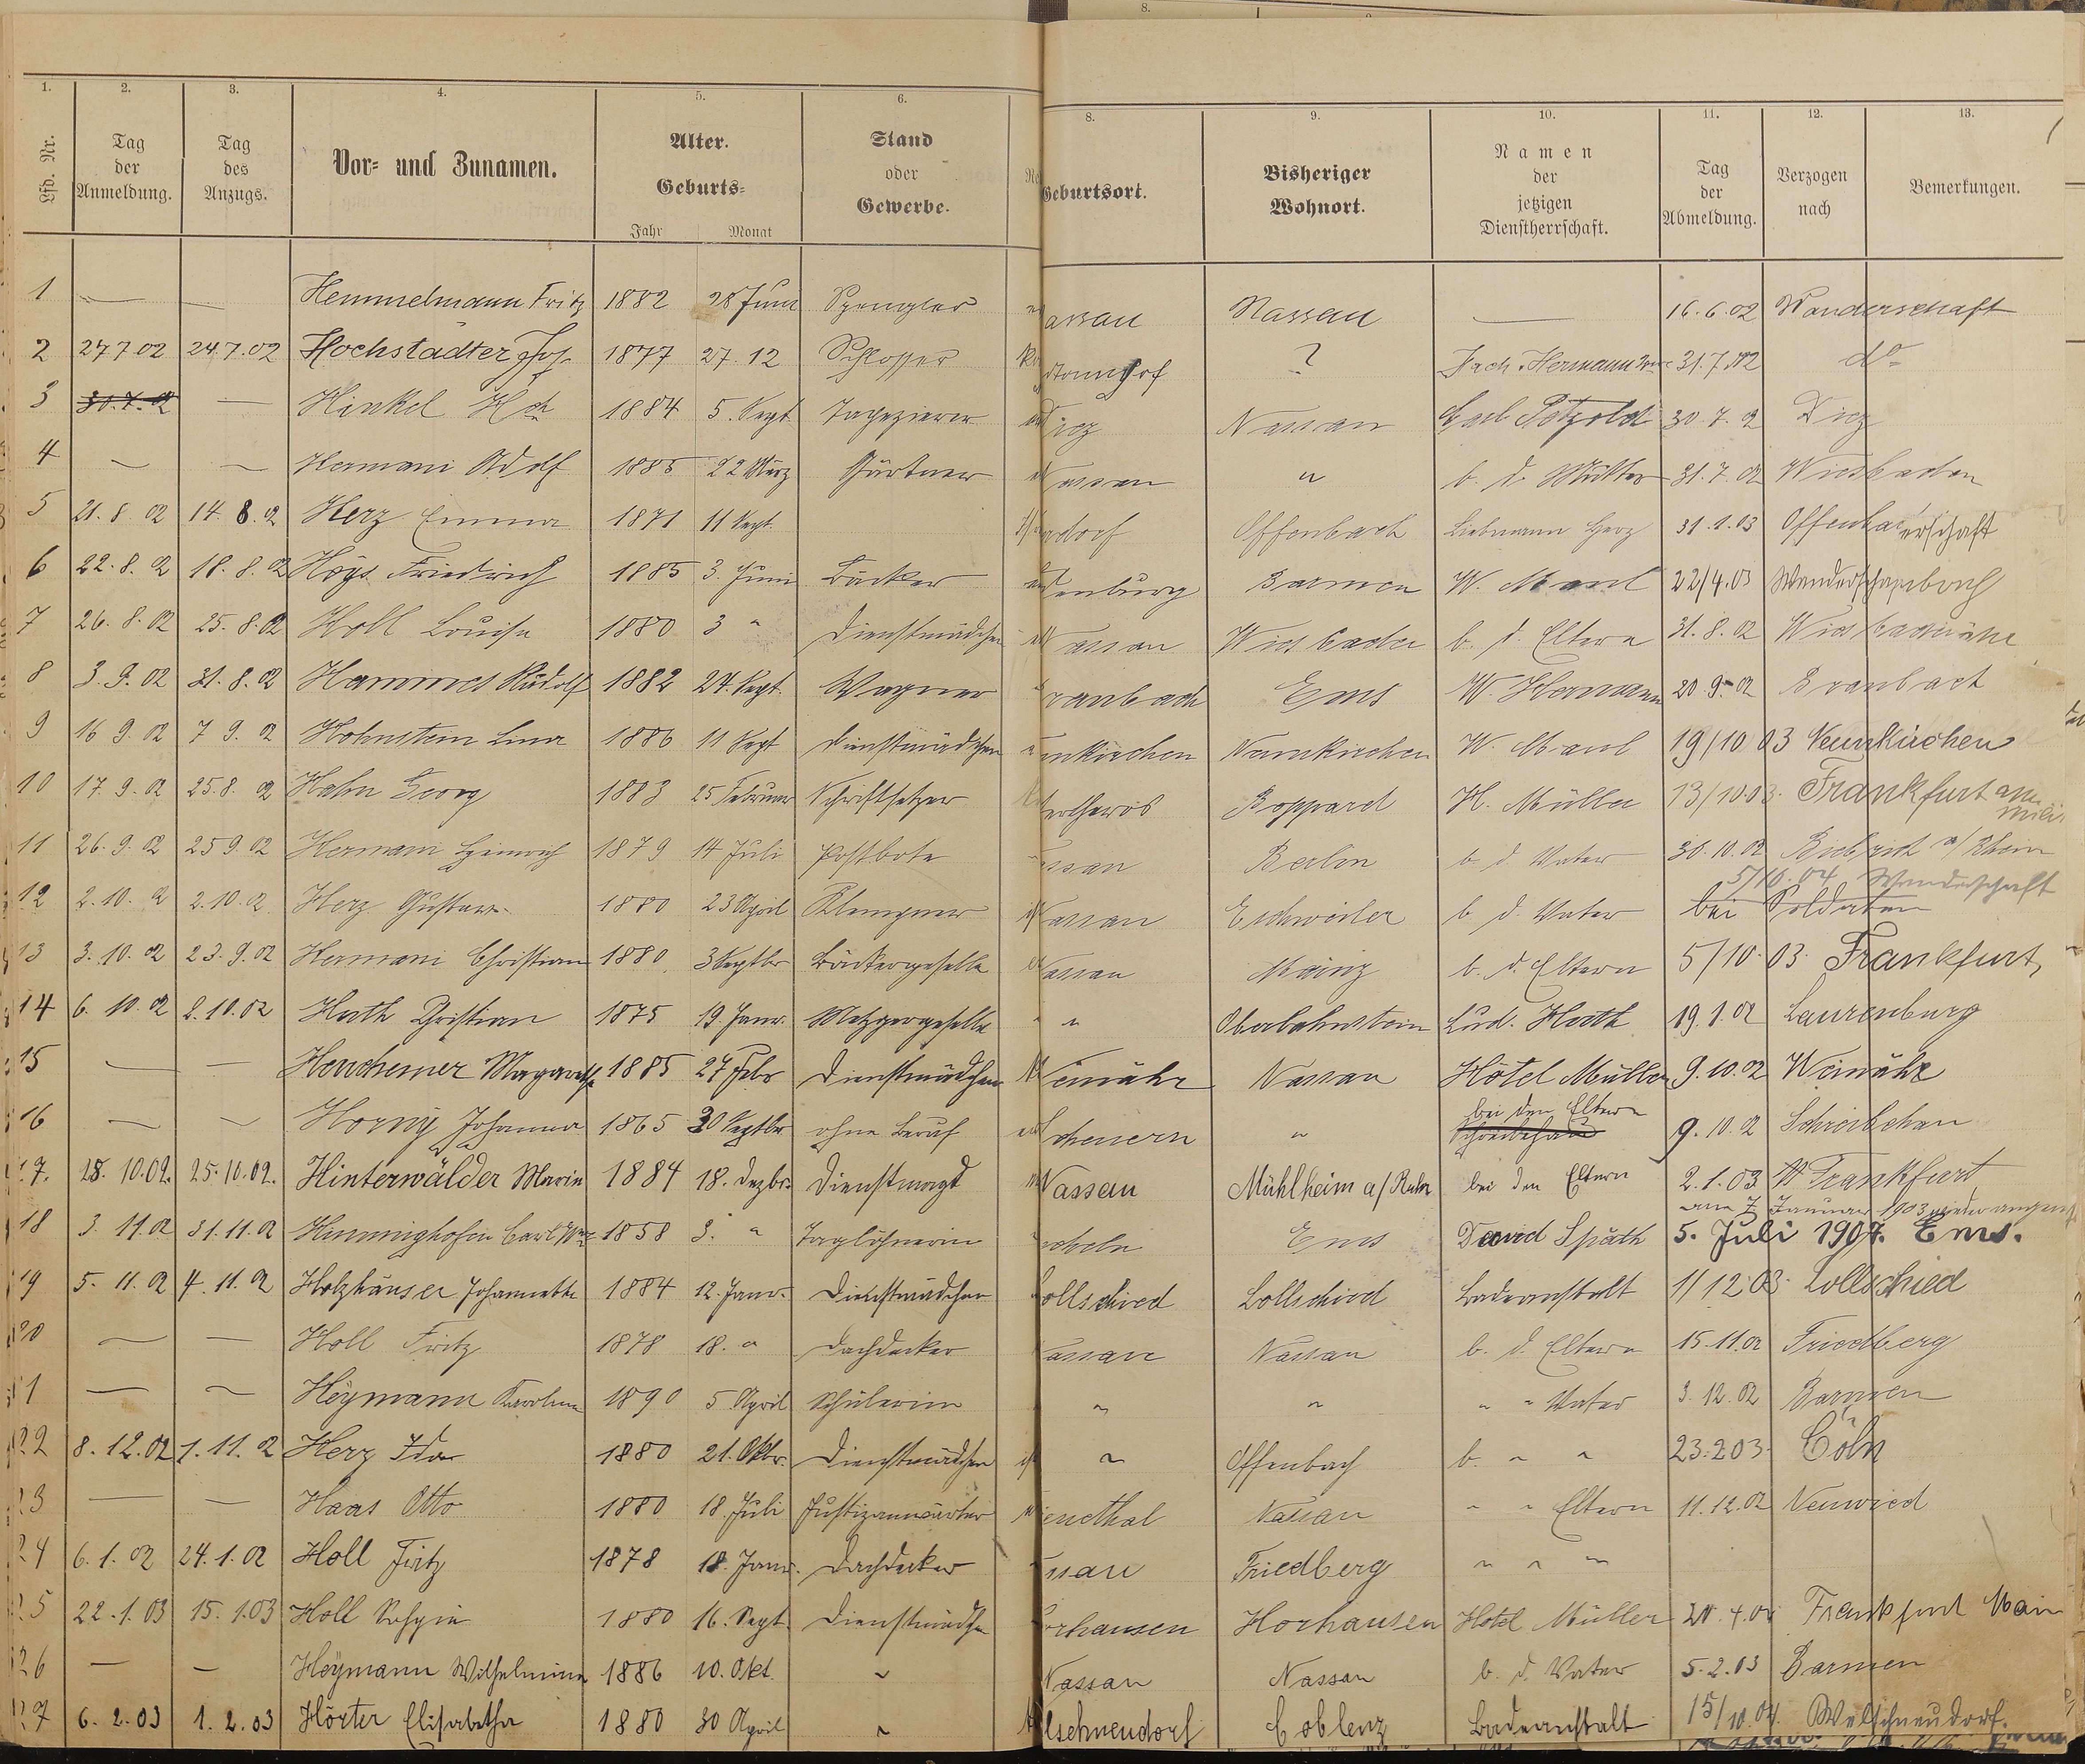 8.
1. 2. 3. 4. 5. 6. 8. 9. 10. 11. 12. 13.
Lfd. Nr. Tag der Anmeldung. Tag des Anzugs. Vor- und Zunamen. Alter. Geburts- Jahr Monat Stand oder Gewerbe. Geburtsort. Bisheriger Wohnort. Namen der jetzigen Dienstherrschaft. Tag der Abmeldung. Verzogen nach Bemerkungen.
1 — — Hemmelmann Fritz 1882 28 Juni Spengler assau Nassau — 16.6.02 Wanderschaft
2 27 7 02 24.7.02 Hochstädter Jos. 1877 27.12 Schlosser ? Hermann 31.7.02 do
3 30.7.02 — Hinkel Hch 1884 5. Sept. Tapezierer Diez Nassau Carl Pötzold 30.7.02 Diez
4 — — Hermani Adolf 1885 22 März Gärtner Nassau " b. d. Mutter 31.7.02 Wiesbaden
5 21.8.02 14.8.02 Herz Emma 1871 11 Sept. dorf Offenbach Liebmann Herz 31.1.03 Offenba
6 22.8.02 18.8.02 Höys Friedrich 1885 3. Juni Bäcker enburg Barmen W. Maul 22/4.03 erschaft
7 26.8.02 25.8.02 Holl Louise 1880 3 " Dienstmädchen Nassau Wiesbaden b. d. Eltern 31.8.02
8 3.9.02 31.8.02 Hammes Rudolf 1882 24. Sept. Wagner raubach Ems W. Hermann 20.9.02 Braubach
9 16 9.02 7 9.02 Hohnstein Lina 1886 11 Sept Dienstmädchen unkirchen Neunkirchen W. Maul 19/10 03 Neunkirchen
10 17.9.02 25.8.02 Hahn Georg 1883 25 Februar Schriftsetzer Boppard H. Müller 13/10 03. Frankfurt
11 26.9.02 25 9.02 Hermann Heinrich 1879 14 Juli Postbote ssau Berlin b. d. Vater 30.10.02 Biebrich a/Rhein
5/10.04 Wanderschaft
12 2.10.02 2.10.02 Herz Gustav 1880 23 April Klempner Nassau Eschweiler b. d. Vater bei Soldaten
13 3.10.02 23.9.02 Hermani Christian 1880 3 Septbr Bäckergeselle Nassau Mainz b. d. Eltern 5/10.03. Frankfurt,
14 6.10.02 2.10.02 Huth Christian 1875 19 Janr. Metzgergeselle " Oberlahnstein Lud. Huth 19.1.02 Laurenburg
15 — — Henchemer Magarethe 1885 27 Febr Dienstmädchen Weinähr Nassau Hôtel Müller 9.10.02 Weinähr
16 — — Horny Johanna 1865 30 Septbr ohne Beruf Scheuern " bei den Eltern 9.10.02
17. 28.10.02. 25.10.02. Hinterwälder Marie 1884 18. Dezbr. Dienstmagd Nassau Mühlheim a/Ruhr bei den Eltern 2.1.03 Frankfurt
am 7 Januar 1903 wieder
18 3.11.02 31.11.02 Hinninghofen Carl Wwe 1858 3. " Taglöhnerin Ems David Späth 5. Juli 1907. Ems.
19 5.11.02 4.11.02 Holzhäuser Johannette 1884 12. Janr. Dienstmädchen Lollschied Lollschied Badeanstalt 1/12 03. Lollschied
20 — — Holl Fritz 1878 18. " Dachdecker Nassau Nassau b. d. Eltern 15.11.02 Friedberg
21 — — Heymann Karoline 1890 5 April Schülerin " " " " Vater 3.12.02 Barmen
22 8.12.02 1.11.02 Herz Ida 1880 21. Oktr. Dienstmädchen " Offenbach b. " " 23.2.03. Cöln
23 — — Haas Otto 1880 18. Juli Justizanwärter enthal Nassau " " Eltern 11.12.02 Neuwied
24 6.1.02 24.1.02 Holl Fritz 1878 18. Janr. Dachdecker ssau Friedberg " " "
25 22.1.03 15.1.03 Holl Sophie 1880 16. Sept. Dienstmädchen orhausen Horhausen Hotel Müller Frankfurt Main
26 — — Heymann Wilhelmine 1886 10. Okt. " Nassau Nassau b. d. Vater 5.2.03 Barmen
27 6.2.03 1.2.03 Hörter Elisabetha 1880 30 April " lschneudorf Coblenz Badeanstalt 15/10.04. Welschneudorf.